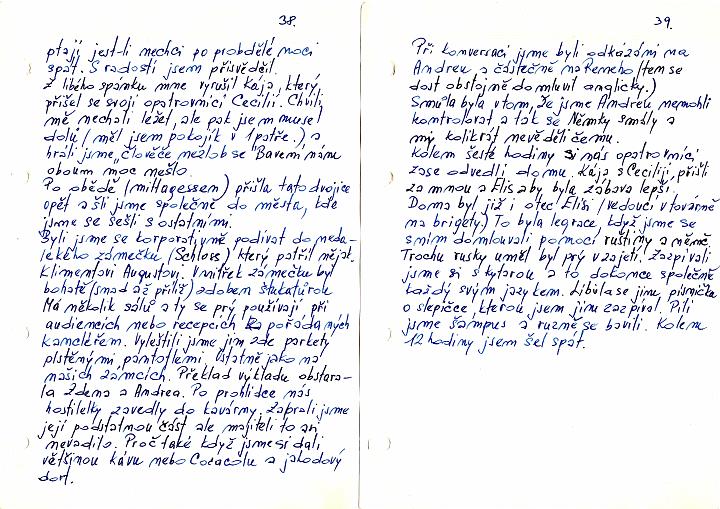 38.
ptají jest-li nechci po probdělé noci
spát. S radostí jsem přisvěděil.
Z libého spánku mne vyrušil Kája, který
přišel se svoji opatrovnicí Cecilií. Chvíli
mě nechali ležet, ale pak jsem musel
dolů (měl jsem pokojík v 1 patře.) a
hráli jsme „člověče nezlob se“ Bavení nám
oboum moc nešlo.
Po obědě (mittagessem) přišla tato dvojice
opět a šli jsme společně do města, kde
jsme se sešli s ostatními.
Byli jsme se korporativně podívat do neda-
lekého zámečku (Schloss) který patřil nějak.
Klimentovi Augustovi. Vnitřek zámečku byl
bohatě (snad až příliš) zdoben štukatúrou
Má několik sálů a ty se prý používají při
audiencích nebo recepcích pořádaných
kancléřem. Vyleštili jsme jim zde parkety
plstěnými pantoflemi. Ostatně jako na
našich zámcích. Překlad výkladu obstara-
la Zdena a Andrea. Po prohlídce nás
hostitelky zavedly do kavárny. Zabrali jsme
její podstatnou část ale majiteli to ani
nevadilo. Proč také když jsme si dali
většinou kávu nebo Cocacolu a jahodový
dort.
39.
Při konversaci jsme byli odkázáni na
Andreu a částečně na Remeho (tem se
dost obstojně domluví anglicky.)
Smůla byla v tom, že jsme Andreu nemohli
kontrolovat a tak se Němky smály a
my kolikrát nevěděli čemu.
Kolem šesté hodiny si nás opatrovníci
zase odvedli domu. Kája s Cecilií, přišli
za mnou a Elis aby byla zábava lepší.
Doma byl již i otec Elisi (vedoucí v továrně
na brigety.) To byla legrace, když jsme se
s ním domlouvali pomocí ruštiny a němč.
Trochu rusky uměl byl prý v zajetí. Zazpívali
jsme si s kytarou a to dokonce společně
každý svým jazykem. Líbila se jim písnička
o slepičce, kterou jsem jim zazpíval. Pili
jsme šampus a různě se bavili. Kolem
12 hodiny jsem šel spát.